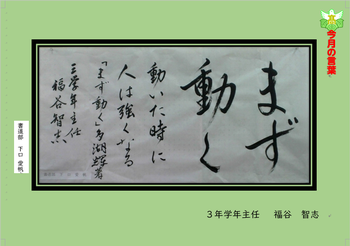 今月の言葉
まず
動く
動いた時に
人は強くなる
「まず動く」多湖輝著
三学年主任
福谷智志
書道部 下口 愛帆
3年学年主任 福谷 智志